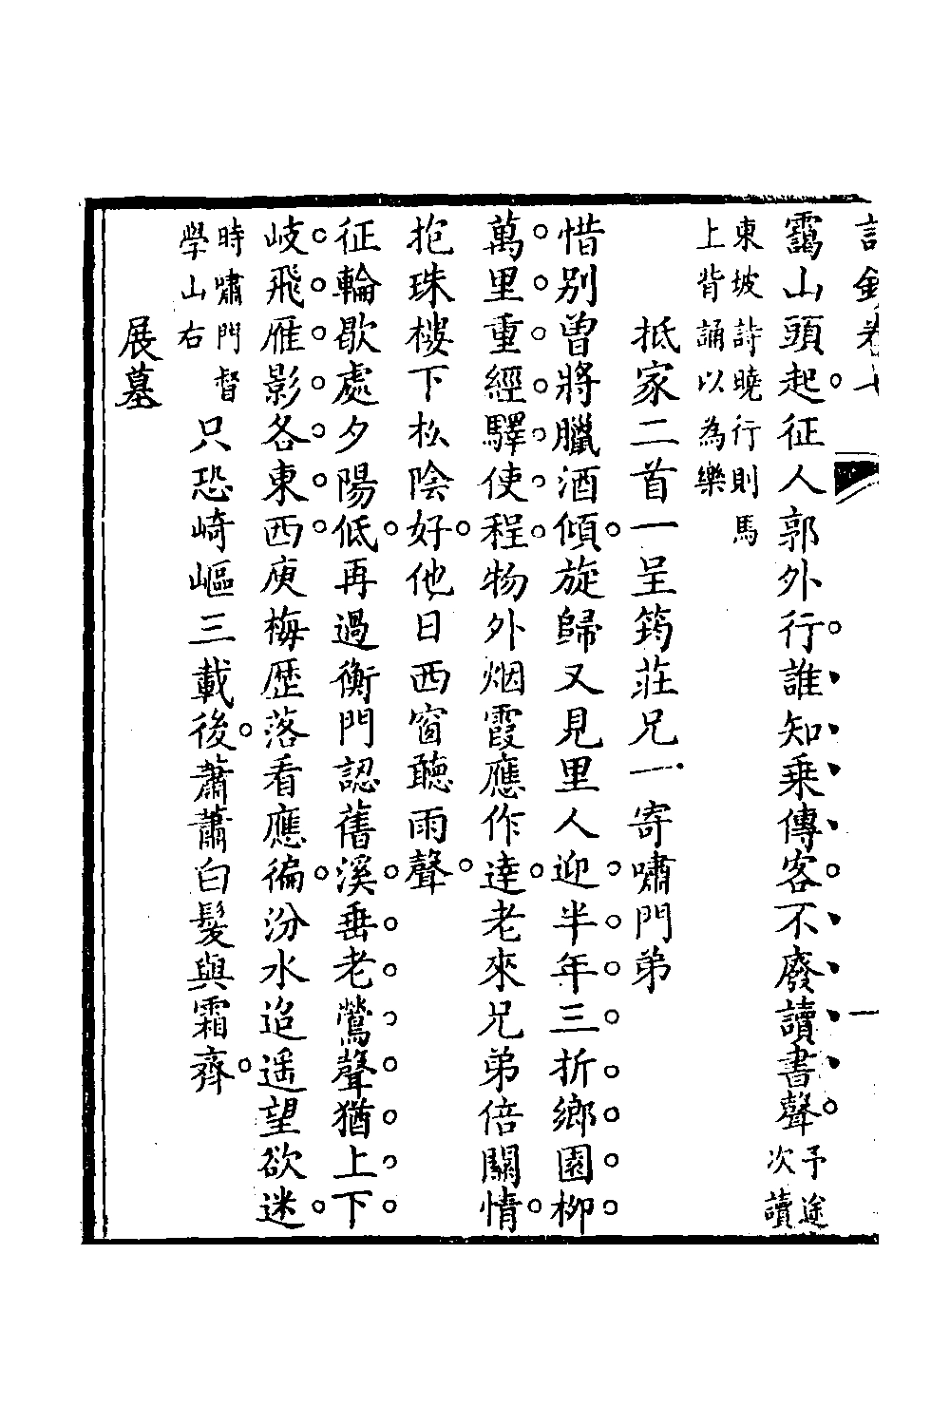 詩鈔卷
一
靄山頭起征人郭外行誰知乘傳客不廢讀書聲
予途
次讀
東坡詩曉行則馬
上背誦以為樂
抵家二首一呈筠莊兄一寄嘯門弟
惜別曾將臘酒傾旋歸又見里人迎半年三折鄉園柳
萬里重經驛使程物外烟霞應作達老來兄弟倍關情
抱珠樓下松陰好他日西窗聽雨聲
征輪歇處夕陽低再過衡門認舊溪垂老鶯聲猶上下
岐飛雁影各東西庾梅歷落看應徧汾水迢遥望欲迷
時嘯門督
學山右
只恐崎嶇三載後蕭蕭白髮與霜齊
展墓